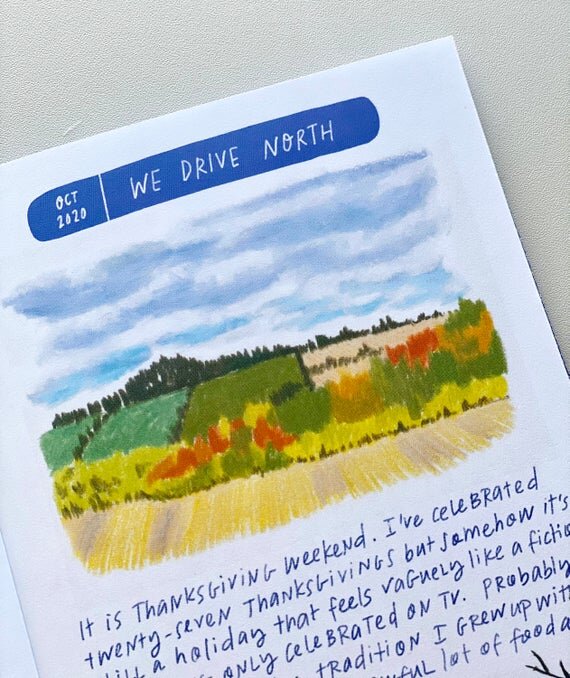 OCT
2020
WE DRIVE NORTH
It is THANKSGIVING WEEKEND. I'VE CELEBRATED
twenty-seven THANKSGIVINGS but somehow it's
a holiday that feels vaguely like a
ONLY CELEBRATED ON TV. PROBABLY
tradition I grew up
lot of food